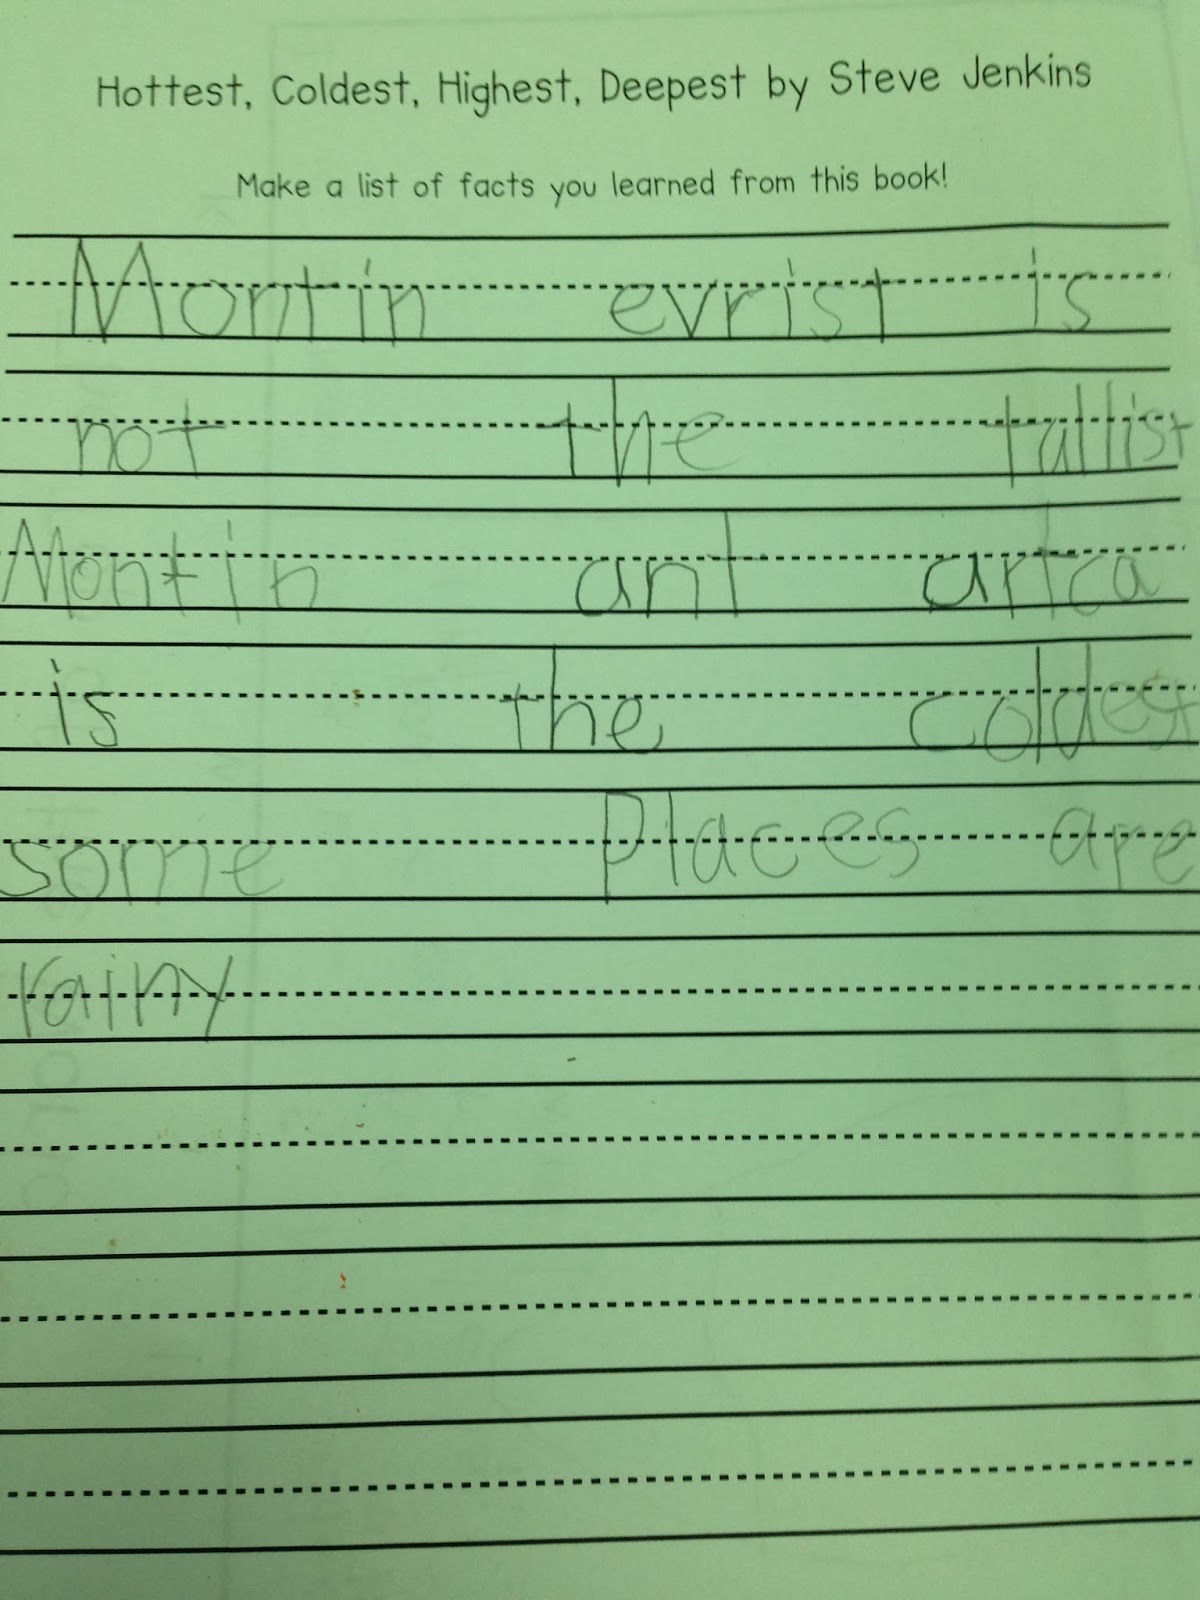 Hottest, Coldest, Highest, Deepest by Steve Jenkins
Make a list of facts you learned from this book!
Montin evrist is
not the tallist
Montin ant artca
is the coldest
some Places are
rainy